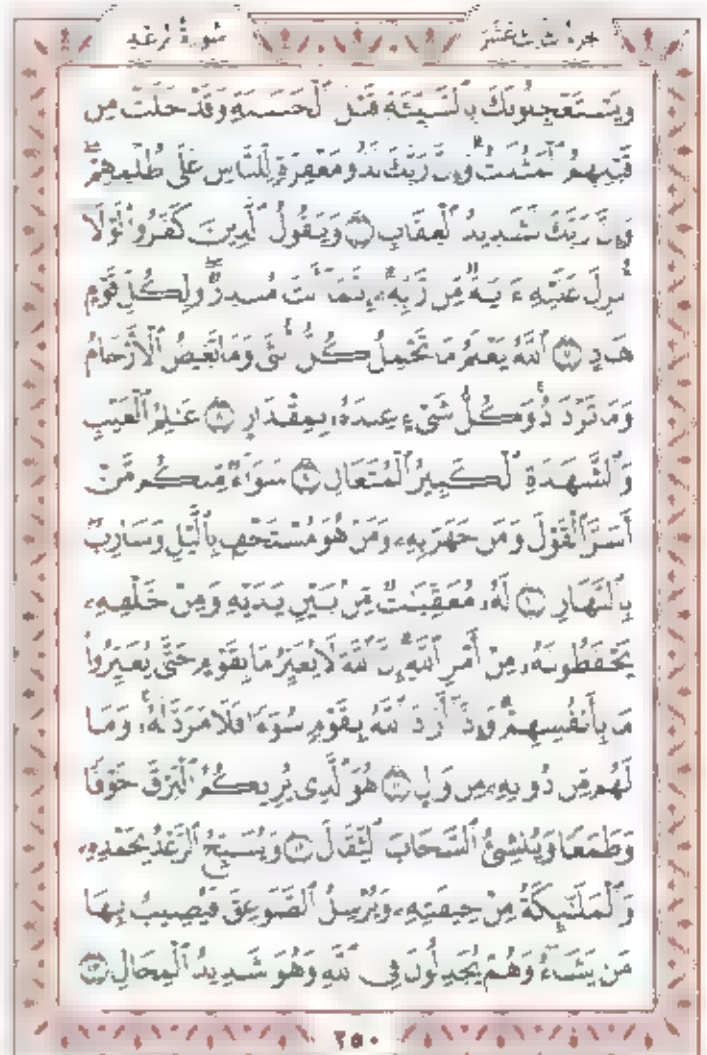 سُورَةُ الرَّعْدِ
الجزء الثالث عشر
وَيَسْتَعْجِلُونَكَ بِٱلسَّيِّئَةِ قَبْلَ ٱلْحَسَنَةِ وَقَدْ خَلَتْ مِن
قَبْلِهِمُ ٱلْمَثُلَٰتُ ۗ وَإِنَّ رَبَّكَ لَذُو مَغْفِرَةٍ لِّلنَّاسِ عَلَىٰ ظُلْمِهِمْ ۖ
وَإِنَّ رَبَّكَ لَشَدِيدُ ٱلْعِقَابِ ۝٦ وَيَقُولُ ٱلَّذِينَ كَفَرُوا۟ لَوْلَآ
أُنزِلَ عَلَيْهِ ءَايَةٌ مِّن رَّبِّهِۦٓ ۗ إِنَّمَآ أَنتَ مُنذِرٌ ۖ وَلِكُلِّ قَوْمٍ
هَادٍ ۝٧ ٱللَّهُ يَعْلَمُ مَا تَحْمِلُ كُلُّ أُنثَىٰ وَمَا تَغِيضُ ٱلْأَرْحَامُ
وَمَا تَزْدَادُ ۖ وَكُلُّ شَىْءٍ عِندَهُۥ بِمِقْدَارٍ ۝٨ عَٰلِمُ ٱلْغَيْبِ
وَٱلشَّهَٰدَةِ ٱلْكَبِيرُ ٱلْمُتَعَالِ ۝٩ سَوَآءٌ مِّنكُم مَّنْ
أَسَرَّ ٱلْقَوْلَ وَمَن جَهَرَ بِهِۦ وَمَنْ هُوَ مُسْتَخْفٍۭ بِٱلَّيْلِ وَسَارِبٌۢ
بِٱلنَّهَارِ ۝١٠ لَهُۥ مُعَقِّبَٰتٌ مِّنۢ بَيْنِ يَدَيْهِ وَمِنْ خَلْفِهِۦ
يَحْفَظُونَهُۥ مِنْ أَمْرِ ٱللَّهِ ۗ إِنَّ ٱللَّهَ لَا يُغَيِّرُ مَا بِقَوْمٍ حَتَّىٰ يُغَيِّرُوا۟
مَا بِأَنفُسِهِمْ ۗ وَإِذَآ أَرَادَ ٱللَّهُ بِقَوْمٍ سُوٓءًا فَلَا مَرَدَّ لَهُۥ ۚ وَمَا
لَهُم مِّن دُونِهِۦ مِن وَالٍ ۝١١ هُوَ ٱلَّذِى يُرِيكُمُ ٱلْبَرْقَ خَوْفًا
وَطَمَعًا وَيُنشِئُ ٱلسَّحَابَ ٱلثِّقَالَ ۝١٢ وَيُسَبِّحُ ٱلرَّعْدُ بِحَمْدِهِۦ
وَٱلْمَلَٰٓئِكَةُ مِنْ خِيفَتِهِۦ وَيُرْسِلُ ٱلصَّوَٰعِقَ فَيُصِيبُ بِهَا
مَن يَشَآءُ وَهُمْ يُجَٰدِلُونَ فِى ٱللَّهِ وَهُوَ شَدِيدُ ٱلْمِحَالِ ۝١٣
٢٥٠